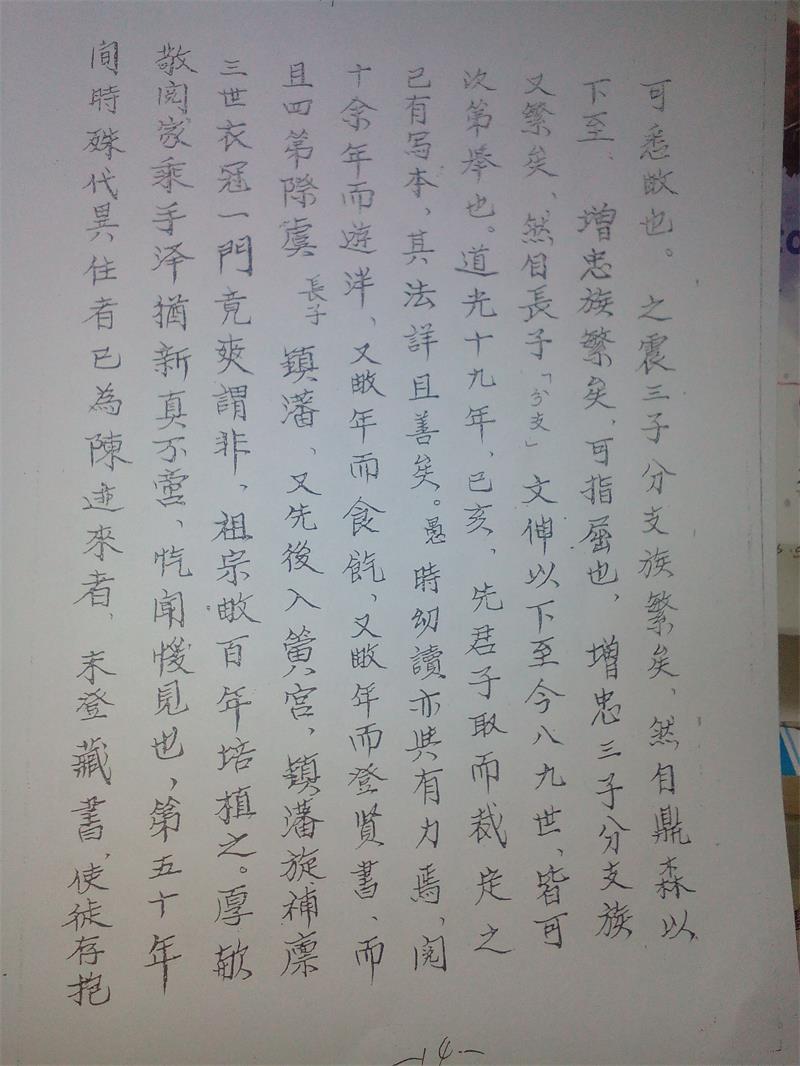 可悉敂也。之震三子分支族繁矣，然自鼎森以
下至、增忠族繁矣，可指屈也，增忠三子分支族
又繁矣，然自長子「分支」文伸以下至今八九世、皆可
次第舉也。道光十九年，已亥，先君子取而裁定之
已有写本，其法詳且善矣。愚時幼讀亦與有力焉，阅
十余年而遊泮，又敂年而食餼，又敂年而登賢書、而
且四第際虞長子鎮藩、又先後入黉宫，鎮藩旋補廪
三世衣冠一門竟爽謂非，祖宗敂百年培植之。厚歟
敬阅家乘手泽猶新真不啻，忾闻慢見也，第五十年
间時殊代異住者已為陳迹來者，未登藏書，使徒存抱
-14-